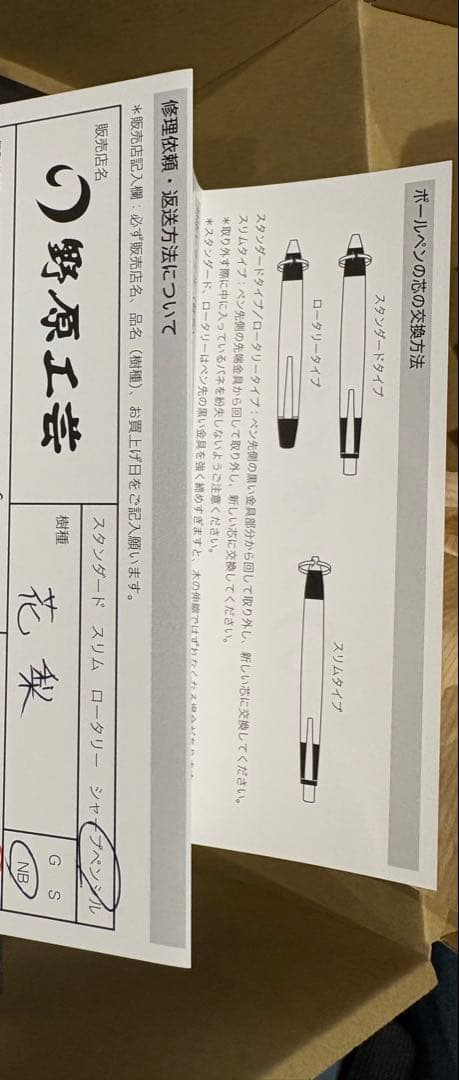 ボールペンの芯の交換方法
スタンダードタイプ
ロータリータイプ
スリムタイプ
スタンダードタイプ/ロータリータイプ：ペン先側の黒い金具部分から回して取り外し、新しい芯に交換してください。
スリムタイプ：ペン先側の先端金具から回して取り外し、新しい芯に交換してください。
*取り外す際に中に入っているバネを紛失しないようご注意ください。
*スタンダード、ロータリーはペン先の黒い金具を強く締めすぎますと、木の伸縮で
修理依頼・返送方法について
*販売店記入欄：必ず販売店名、品名（樹種）、お買上げ日をご記入願います。
販売店名
野原工芸
スタンダード スリム ロータリー シャープペンシル
樹種
花梨
G S
NB